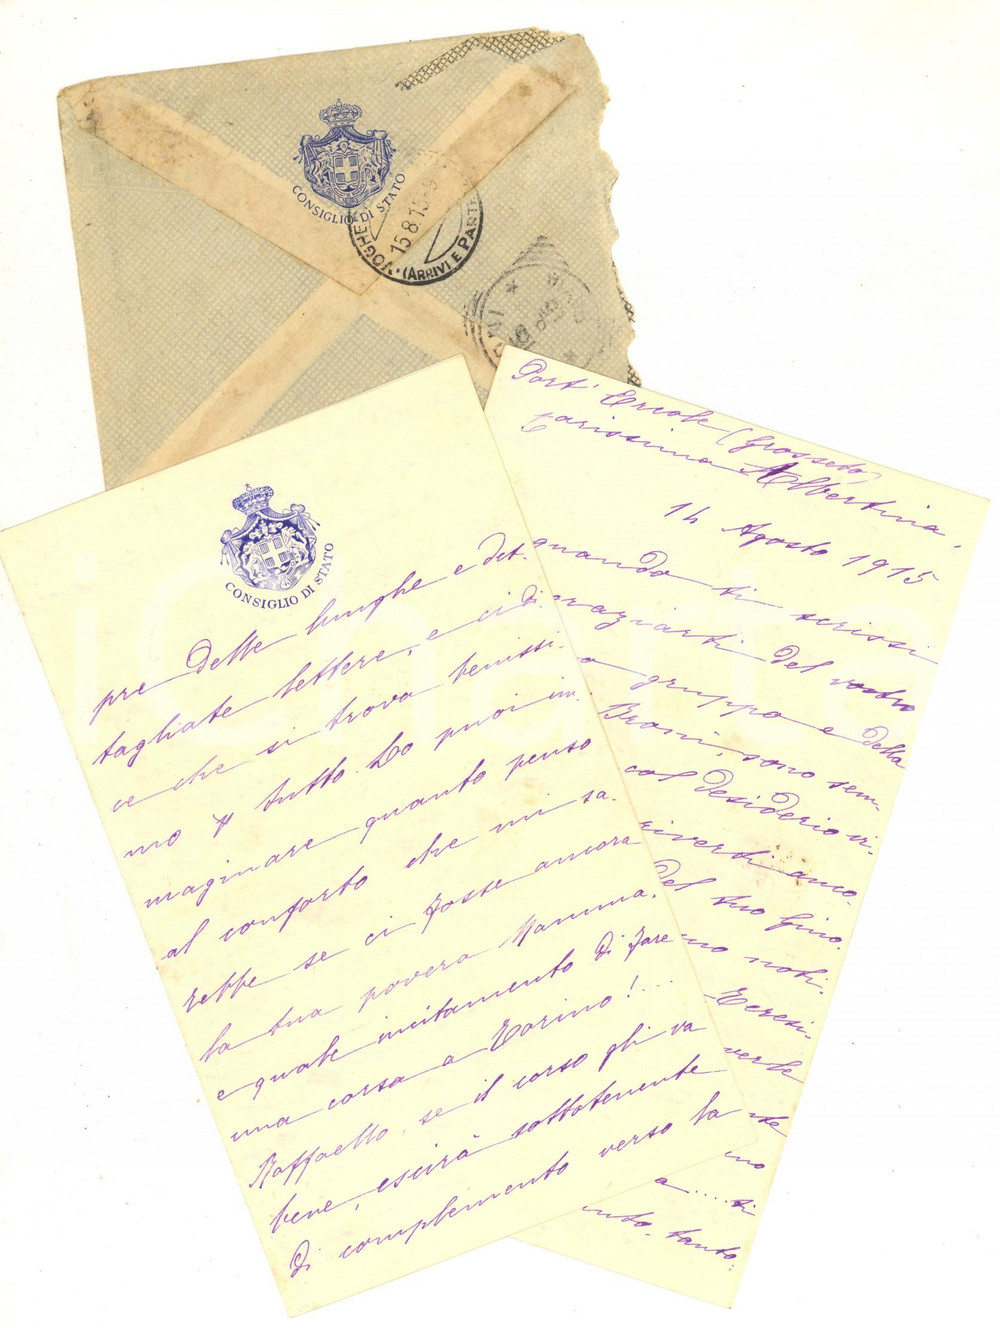 CONSIGLIO DI STATO
15 8 15
(ARRIVI E PARTE
Port' Ercole (Grosseto)
Carissima Albertina,
14 Agosto 1915
quando ti scrissi
del vostro
gruppo e della
Broni, sono sem-
col desiderio vi-
del tuo Gino.
noti-
Teresi-
verle
ti
tanto,
CONSIGLIO DI STATO
pre delle lunghe e det-
tagliate lettere, e ci di-
ce che si trova benissi-
mo x tutto. Lo puoi im-
maginare quanto penso
al conforto che mi sa-
rebbe se ci fosse ancora
la tua povera Mamma,
e quale incitamento di fare
una corsa a Torino!...
Raffaello, se il corso gli va
bene, escirà sottotenente
di complemento verso la